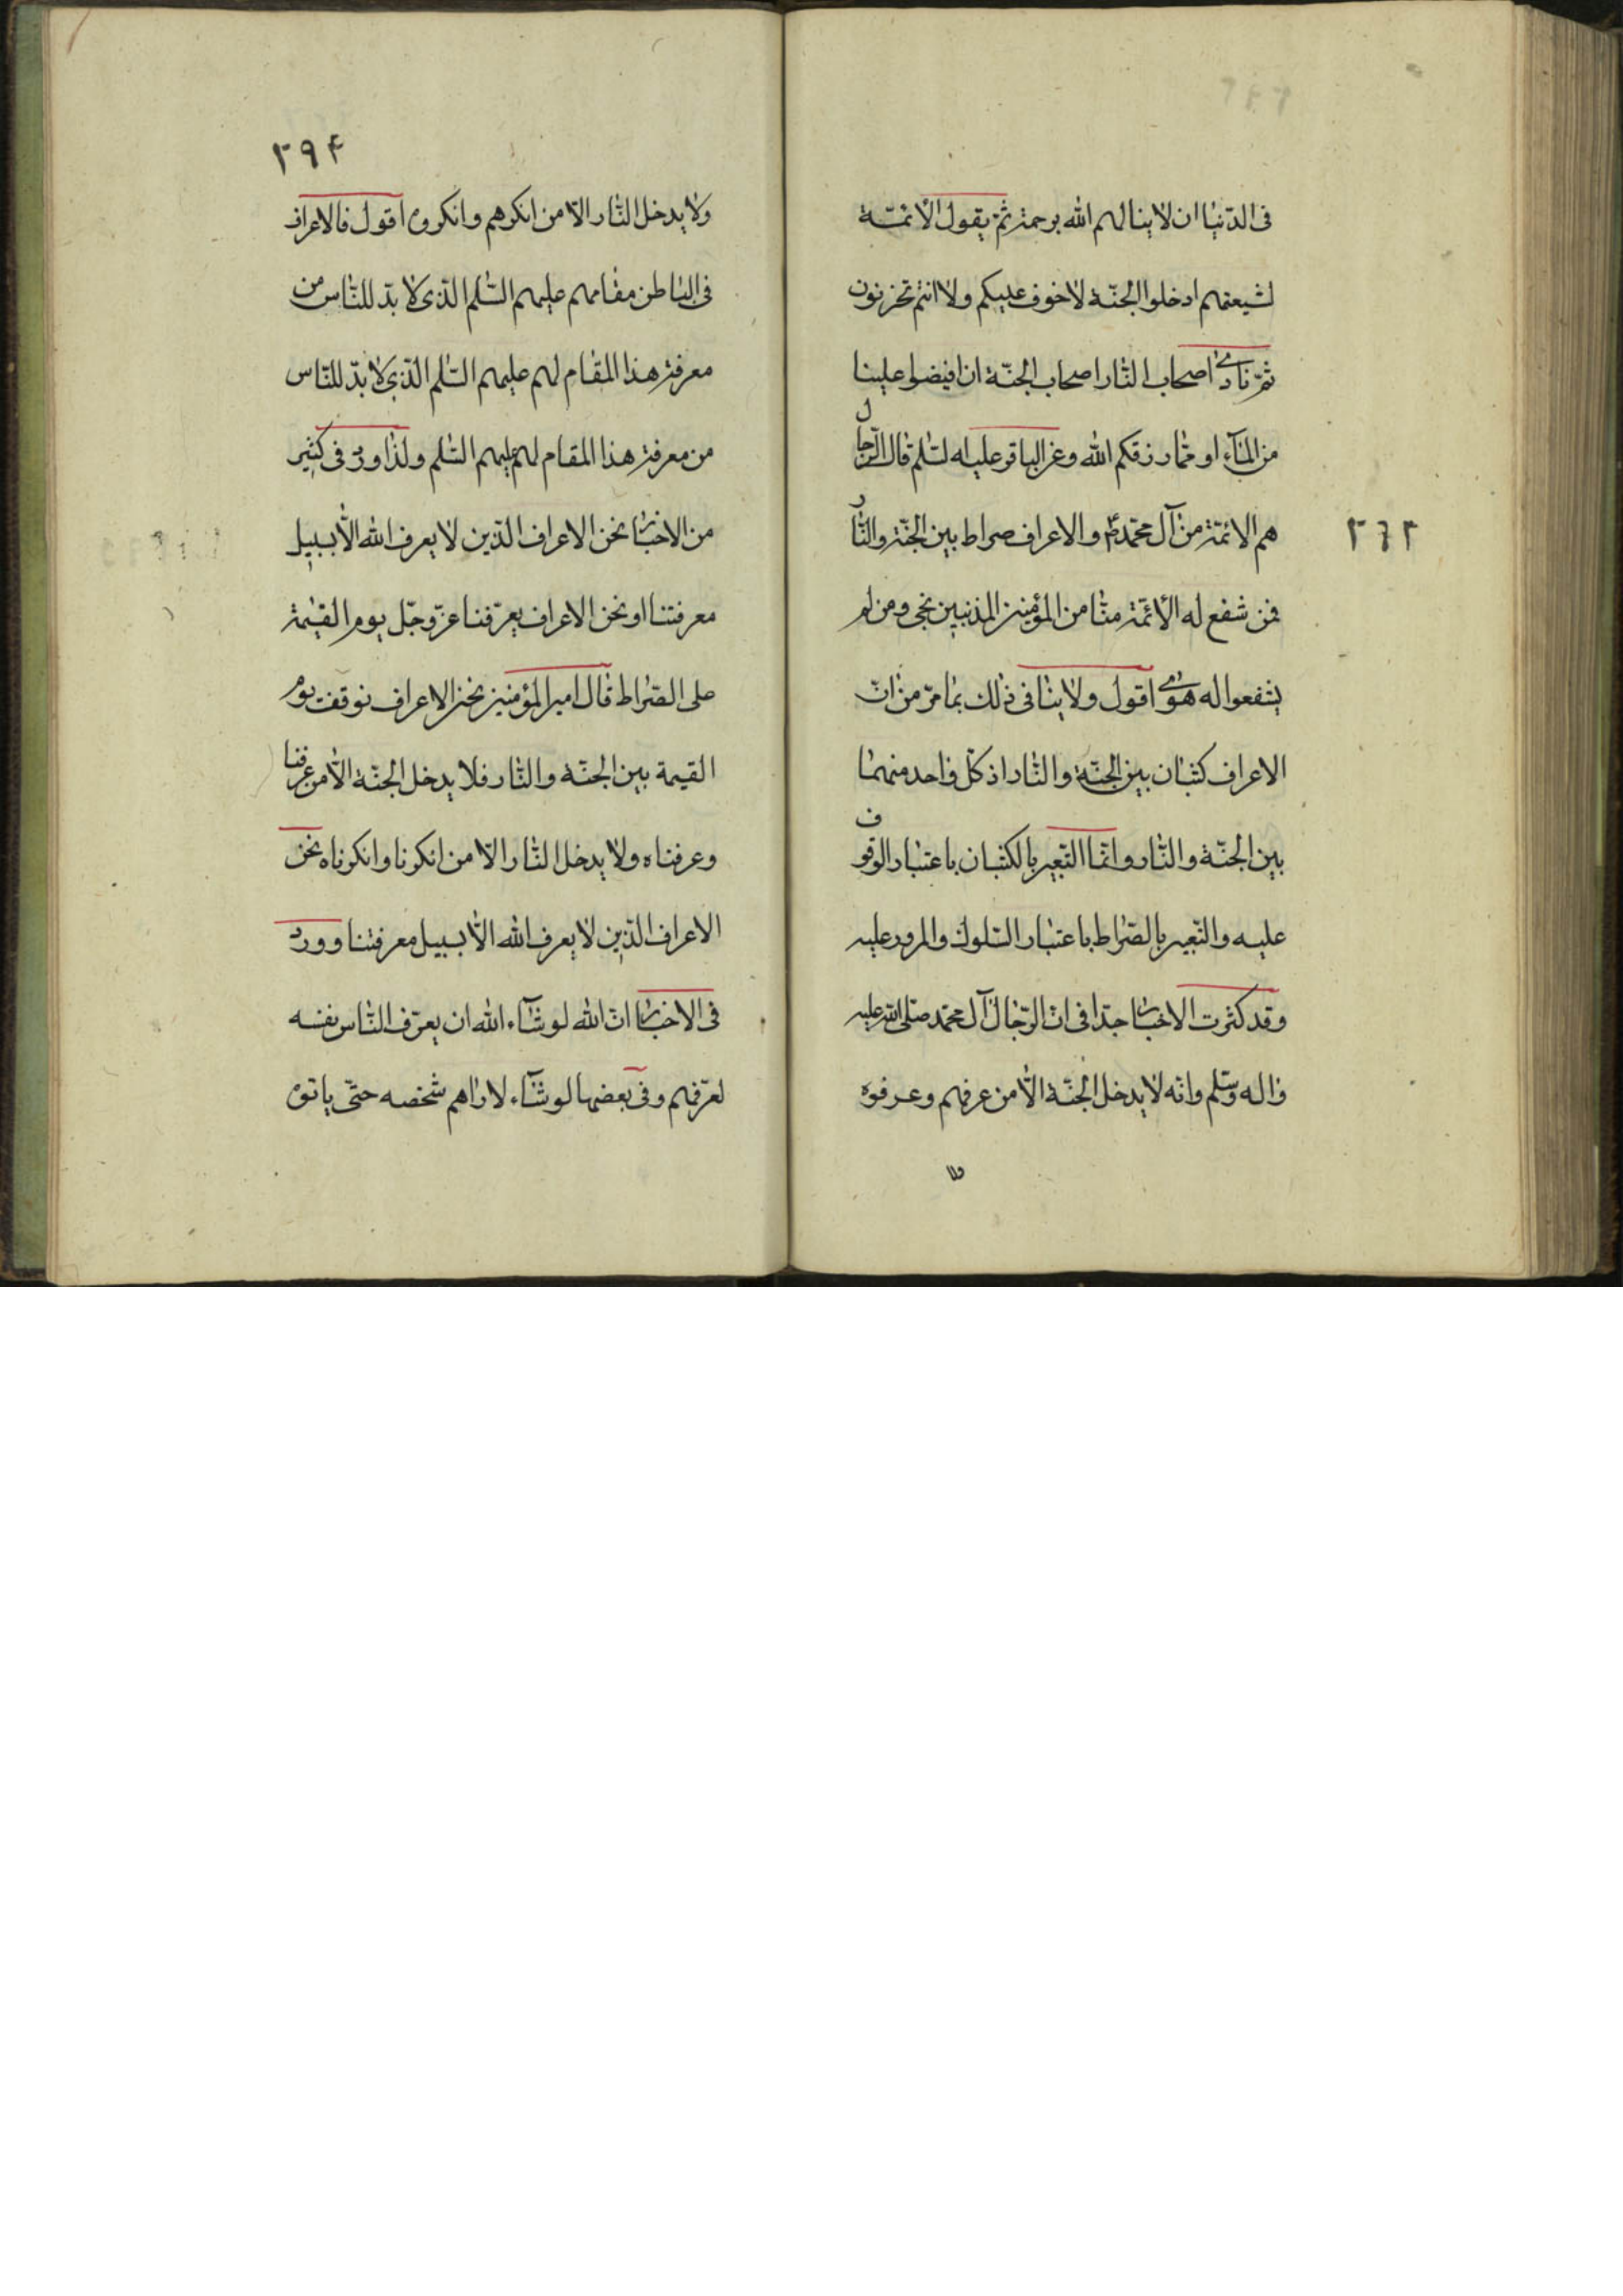 فى الدّنيا ان لا ينالهم الله برحمة ثمّ يقول الائمّة
لشيعتهم ادخلوا الجنّة لا خوف عليكم ولا انتم تحزنون
ثمّ نادى اصحاب النّار اصحاب الجنّة ان افيضوا علينا
من المآء او ممّا رزقكم الله وعن الباقر عليه السّلم قال الرّجال
هم الائمّة من آل محمّد والاعراف صراط بين الجنّة والنّار
٢٦٢
فمن شفع له الائمّة منّا من المؤمنين المذنبين نجى ومن لم
يشفعوا له هوى اقول ولا ينافى ذلك بما مرّ من انّ
الاعراف كثبان بين الجنّة والنّار اذ كلّ واحد منهما
بين الجنّة والنّار وانّما التّعبير بالكثبان باعتبار الوقوف
عليه والتّعبير بالصّراط باعتبار السّلوك والمرور عليه
وقد كثرت الاخبار جدّا فى انّ الرّجال آل محمّد صلّى الله عليه
واله وسّلم وانّه لا يدخل الجنّة الّا من عرفهم وعرفوه
ولا
٢٩۴
ولا يدخل النّار الّا من انكرهم وانكروه اقول فالاعراف
فى الباطن مقامهم عليهم السّلم الّذى لا بدّ للنّاس من
معرفة هذا المقام لهم عليهم السّلم الّذى لا بدّ للنّاس
من معرفة هذا المقام لهم عليهم السّلم ولذا ورد فى كثير
من الاخبار نحن الاعراف الّذين لا يعرف الله الّا بسبيل
معرفتنا ونحن الاعراف يعرّفنا عزّ وجّل يوم القيمة
على الصّراط قال امير المؤمنين نحن الاعراف نوقف يوم
القيمة بين الجنّة والنّار فلا يدخل الجنّة الّا من عرفنا
وعرفناه ولا يدخل النّار الّا من انكرنا وانكرناه نحن
الاعراف الّذين لا يعرف الله الّا بسبيل معرفتنا وورد
فى الاخبار انّ الله لو شآء الله ان يعرّف النّاس نفسه
لعرّفهم وفى بعضها لو شآء لاراهم شخصه حتّى ياتوه